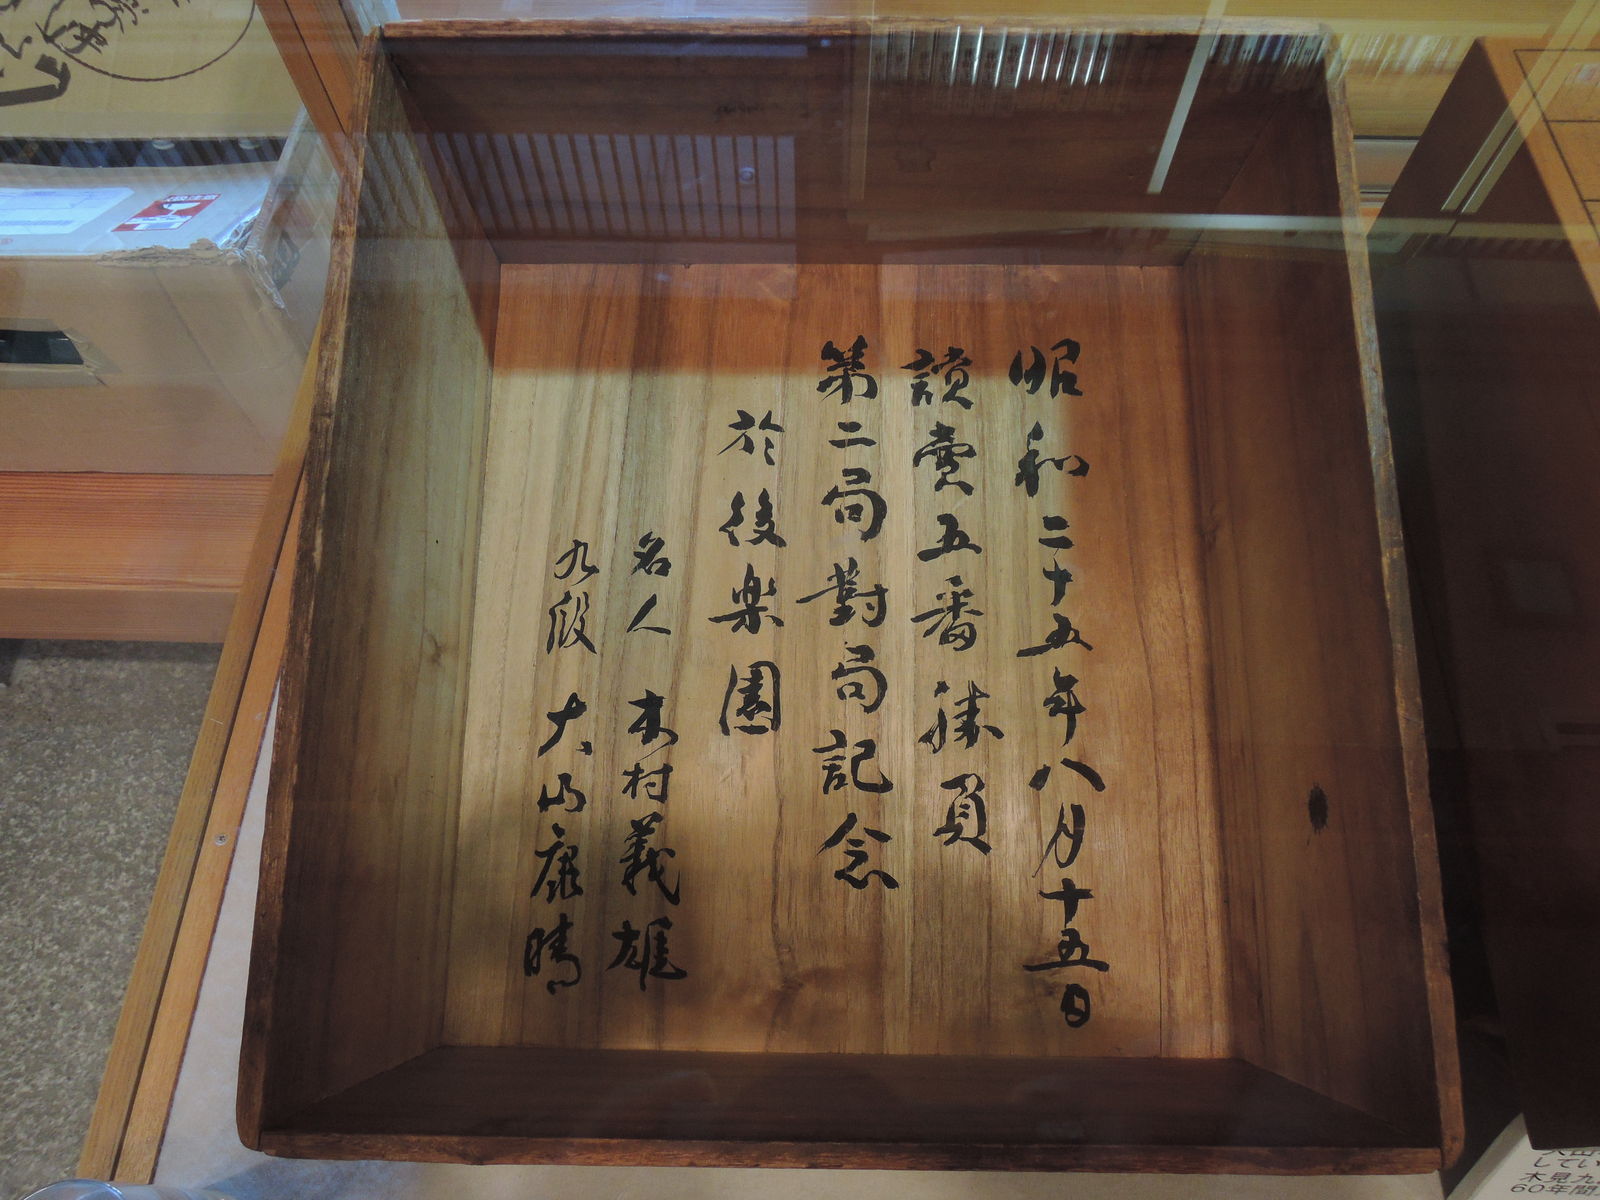 昭和二十五年八月十五日
讀賣五番勝負
第二局對局記念
於後楽園
名人 木村義雄
九段 大山康晴
してい
木見九
60年間